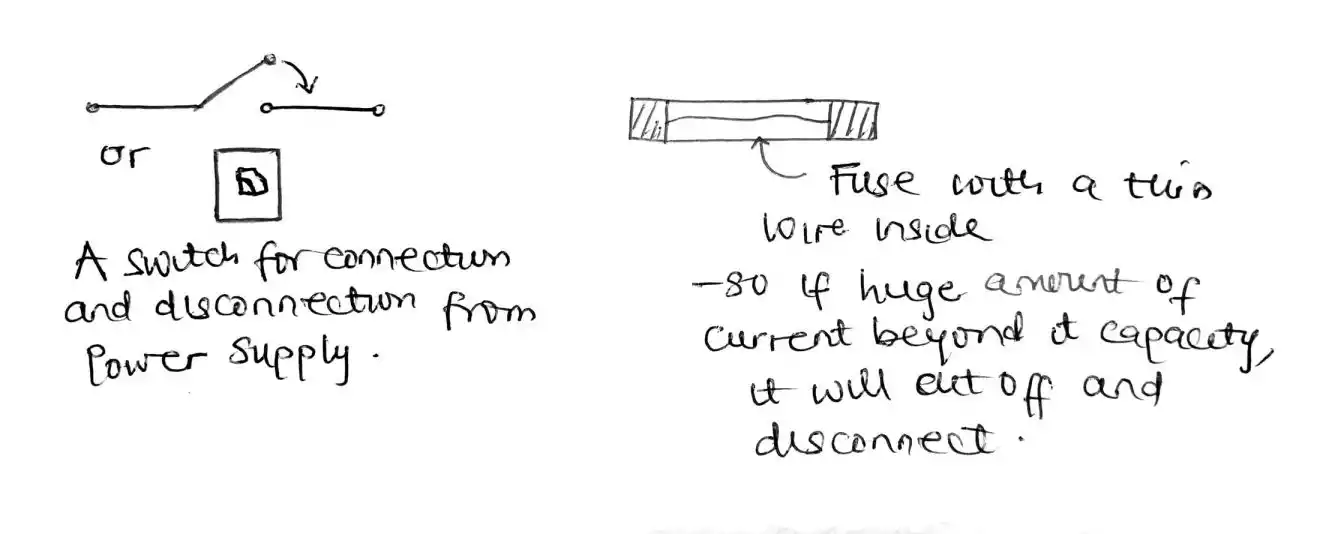 or
A switch for connection
and disconnection from
Power Supply.
Fuse with a thin
wire inside
-so if huge amount of
current beyond it capacity,
it will cut off and
disconnect.